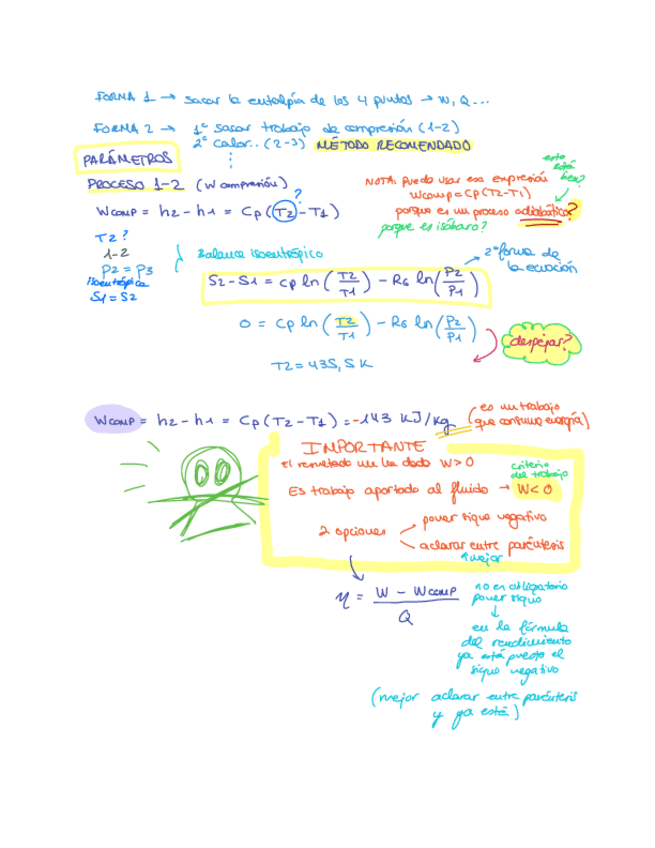 FORMA 1 → sacar la entalpía de los 4 puntos → W, Q...
FORMA 2 → 1º sacar trabajo de compresión (1-2)
2º calor.. (2-3) MÉTODO RECOMENDADO
⋮
PARÁMETROS
PROCESO 1-2 (W compresión)
?
Wcomp = h2 - h1 = Cp (T2 - T1)
esto está bien?
NOTA: puedo usar esa expresión
Wcomp = CP (T2-T1)
porque es un proceso adiabático?
porque es isóbaro?
T2?
1-2
P2 = P3
Isoentrópica
S1 = S2
Balance isoentrópico
2ª forma de
la ecuación
S2 - S1 = cp ln (T2/T1) - RG ln (P2/P1)
0 = Cp ln (T2/T1) - RG ln (P2/P1)
despejar?
T2 = 435,5 K
Wcomp = h2 - h1 = Cp (T2 - T1) = -143 KJ/kg (es un trabajo
que consume energía)
IMPORTANTE
el resultado me ha dado W > 0
criterio
del trabajo
Es trabajo aportado al fluido → W < 0
2 opciones
poner signo negativo
aclarar entre paréntesis
mejor
η = (W - Wcomp)/Q
no es obligatorio
poner signo
↓
en la fórmula
del rendimiento
ya está puesto el
signo negativo
(mejor aclarar entre paréntesis
y ya está)